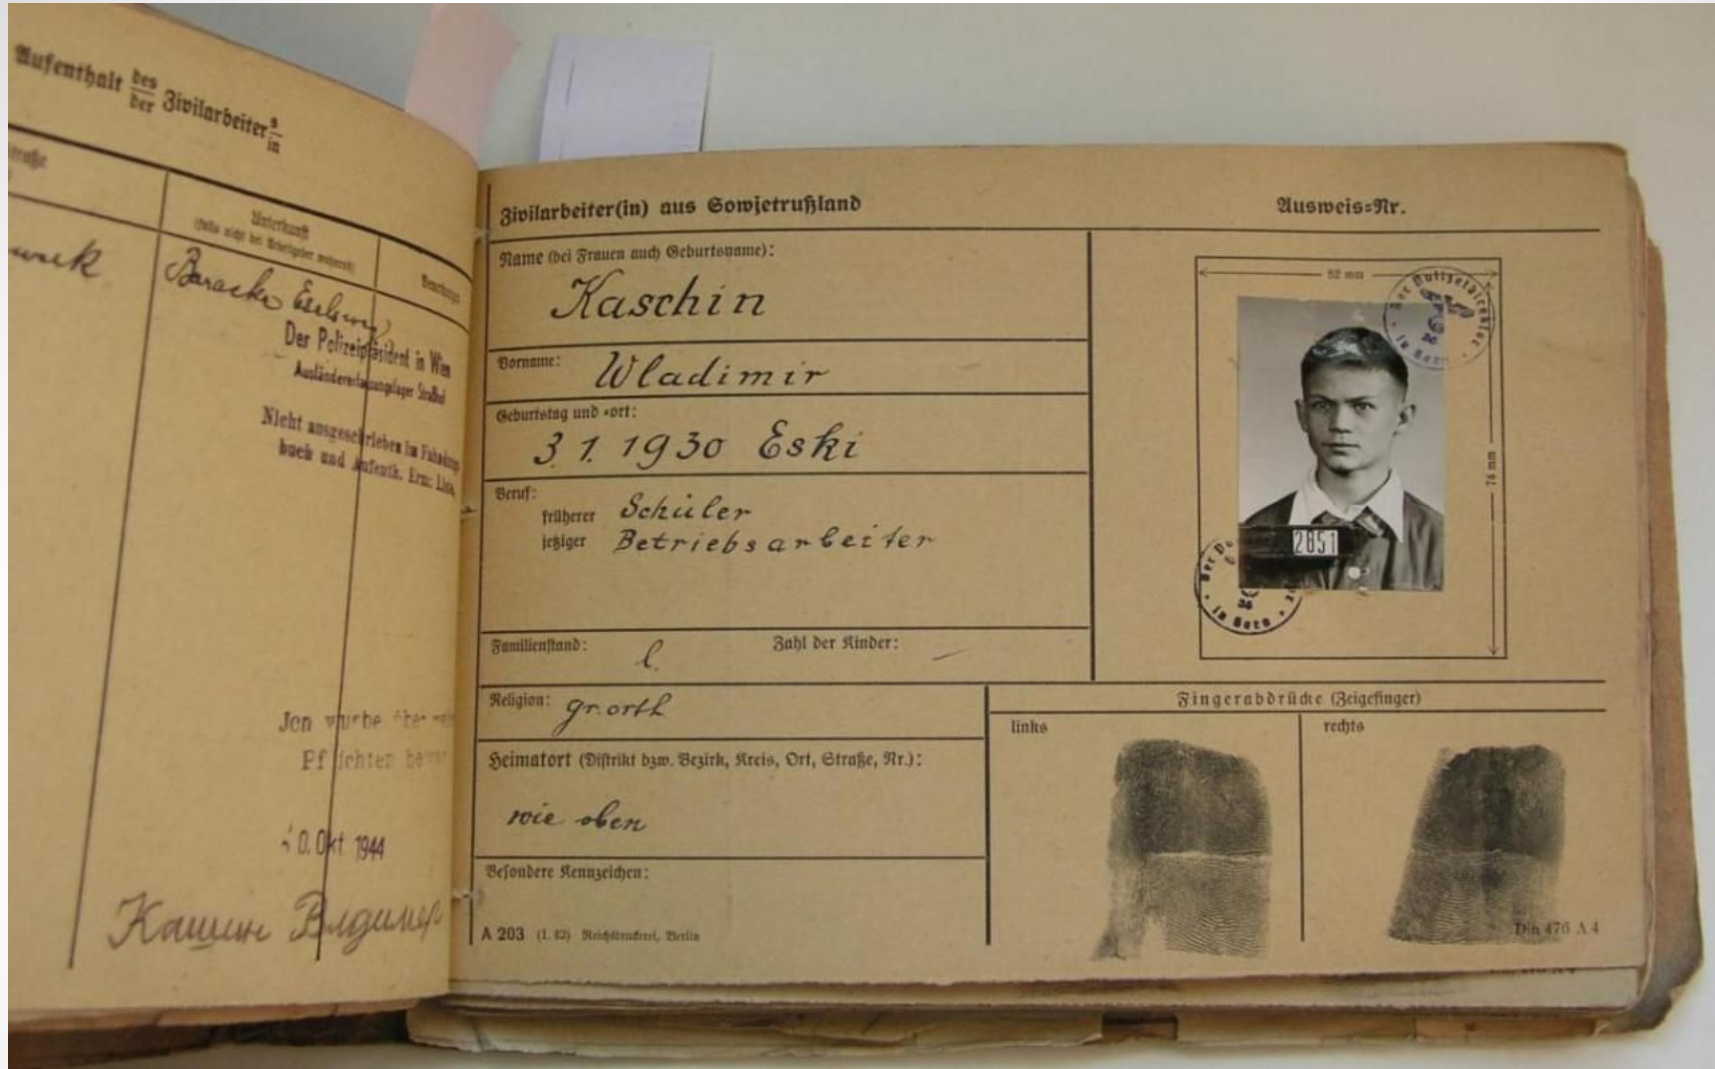 Aufenthalt des/der Zivilarbeiters/in
Unterkunft
(falls nicht bei Arbeitgeber wohnend)
Baracke
Der Polizeipräsident in Wien
Nicht ausgeschrieben im Fahndungs
buch und Aufenth. Erm. Liste.
Pflichten
0. Okt 1944
Кашин Владимер
Zivilarbeiter(in) aus Sowjetrußland
Ausweis=Nr.
Name (bei Frauen auch Geburtsname):
Kaschin
Vorname: Wladimir
Geburtstag und =ort:
3. 1. 1930 Eski
Beruf:
früherer Schüler
jetziger Betriebsarbeiter
Familienstand: l. Zahl der Kinder: –
Religion: gr. orth
Heimatort (Distrikt bzw. Bezirk, Kreis, Ort, Straße, Nr.):
wie oben
Besondere Kennzeichen:
A 203 (1. 42) Reichsdruckerei, Berlin
52 mm
74 mm
Der Polizeidirektor
2851
Fingerabdrücke (Zeigefinger)
links rechts
Din 476 A 4